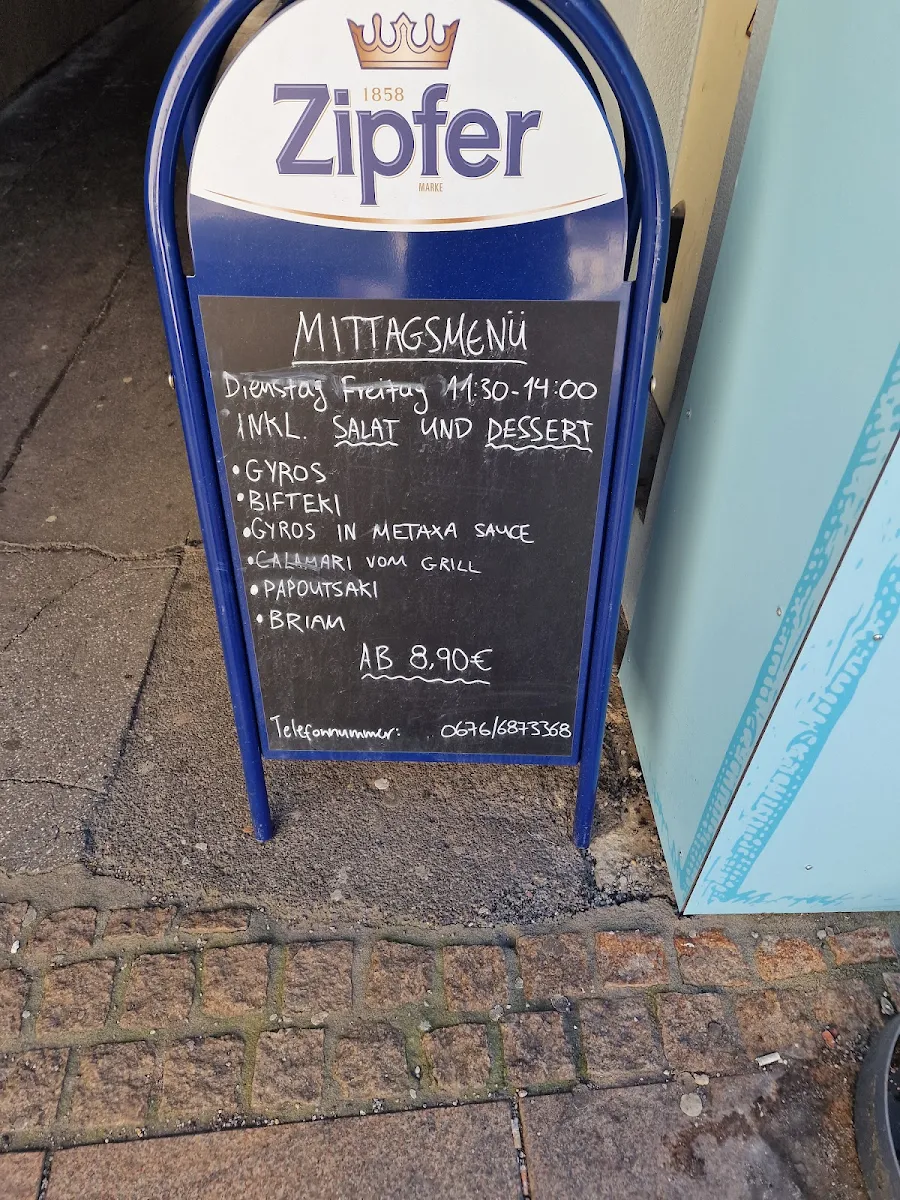 1858
Zipfer
MARKE
MITTAGSMENÜ
Dienstag Freitag 11:30-14:00
INKL. SALAT UND DESSERT
• GYROS
• BIFTEKI
• GYROS IN METAXA SAUCE
• CALAMARI VOM GRILL
• PAPOUTSAKI
• BRIAM
AB 8,90€
Telefonnummer: 0676/6873368